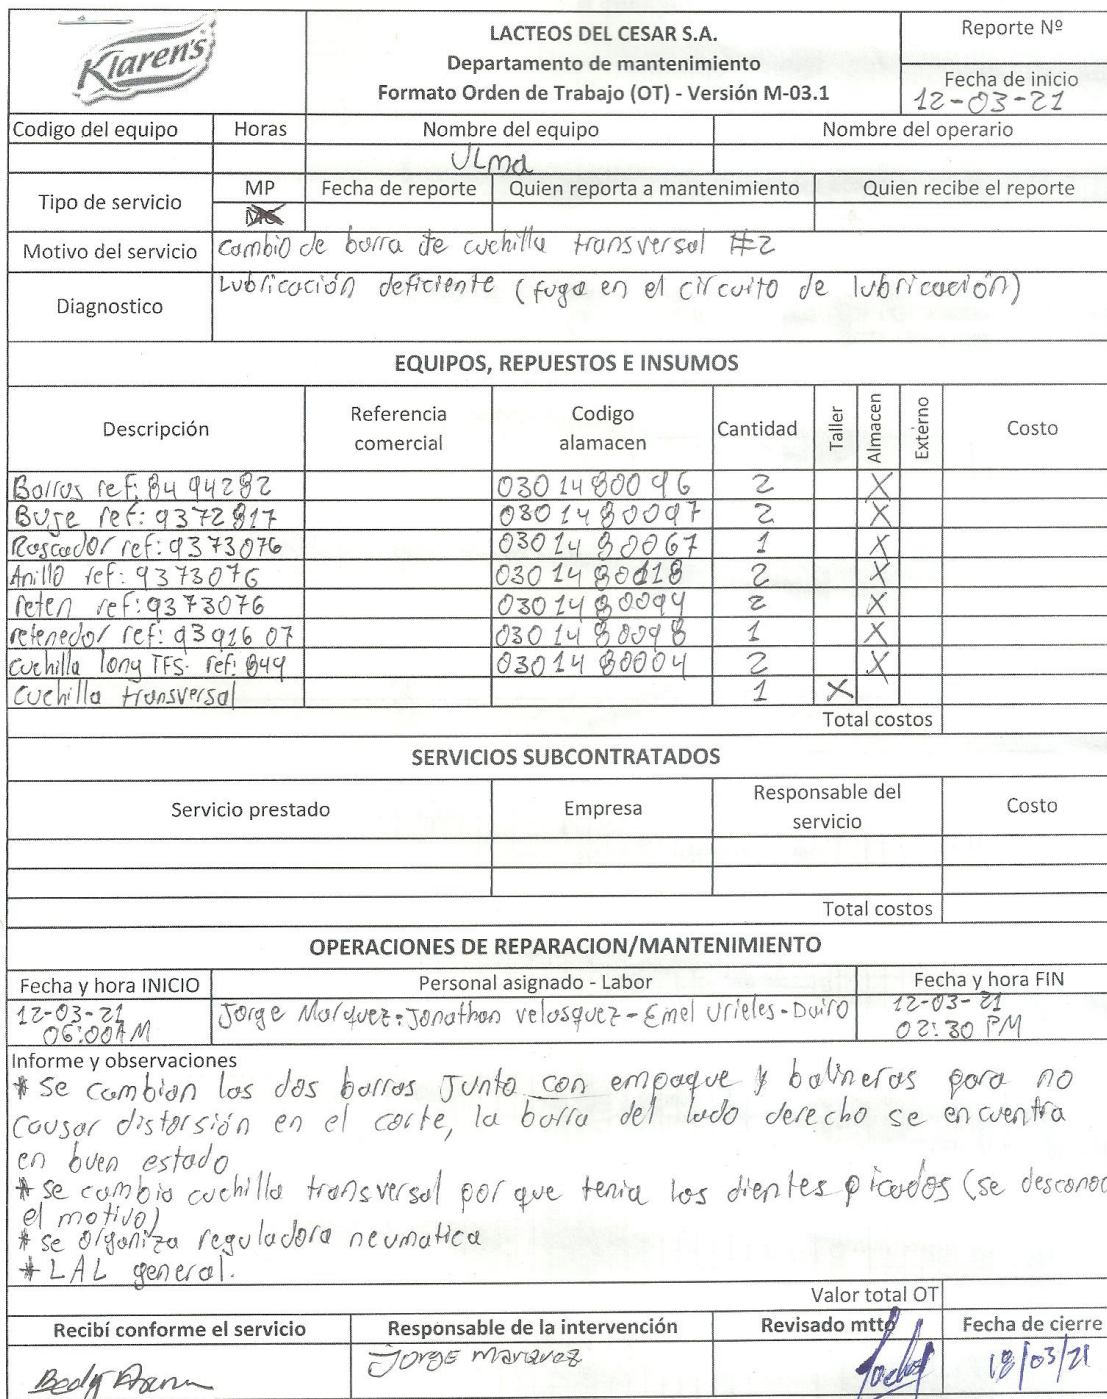 Klarens
LACTEOS DEL CESAR S.A.
Departamento de mantenimiento
Formato Orden de Trabajo (OT) - Versión M-03.1
Reporte Nº
Fecha de inicio
12-03-21
Codigo del equipo Horas Nombre del equipo Nombre del operario
ULma
Tipo de servicio MP Fecha de reporte Quien reporta a mantenimiento Quien recibe el reporte
MC
Motivo del servicio Cambio de barra de cuchilla transversal #2
Diagnostico Lubricación deficiente (fuga en el circuito de lubricación)
EQUIPOS, REPUESTOS E INSUMOS
Descripción Referencia comercial Codigo alamacen Cantidad Taller Almacen Externo Costo
Barras ref: 8494282 03014800 96 2 X
Buje ref: 9372817 0301480097 2 X
Rascador ref: 9373076 03014 80067 1 X
Anillo ref: 9373076 03014 80018 2 X
reten ref: 9373076 03014 80094 2 X
retenedor ref: 9391607 03014 80098 1 X
Cuchilla long TFS. ref: 844 03014 80004 2 X
Cuchilla transversal 1 X
Total costos
SERVICIOS SUBCONTRATADOS
Servicio prestado Empresa Responsable del servicio Costo
Total costos
OPERACIONES DE REPARACION/MANTENIMIENTO
Fecha y hora INICIO Personal asignado - Labor Fecha y hora FIN
12-03-21 Jorge Marquez - Jonathan velasquez - Emel Urieles - Dairo 12-03-21
06:00AM 02:30 PM
Informe y observaciones
* Se cambian las dos barras junto con empaque y balineras para no
causar distorsión en el corte, la barra del lado derecho se encuentra
en buen estado
* se cambio cuchilla transversal por que tenia los dientes picados (se desconoc
el motivo)
* se organiza reguladora neumatica
* LAL general.
Valor total OT
Recibí conforme el servicio Responsable de la intervención Revisado mtto Fecha de cierre
Jorge Marquez 18/03/21